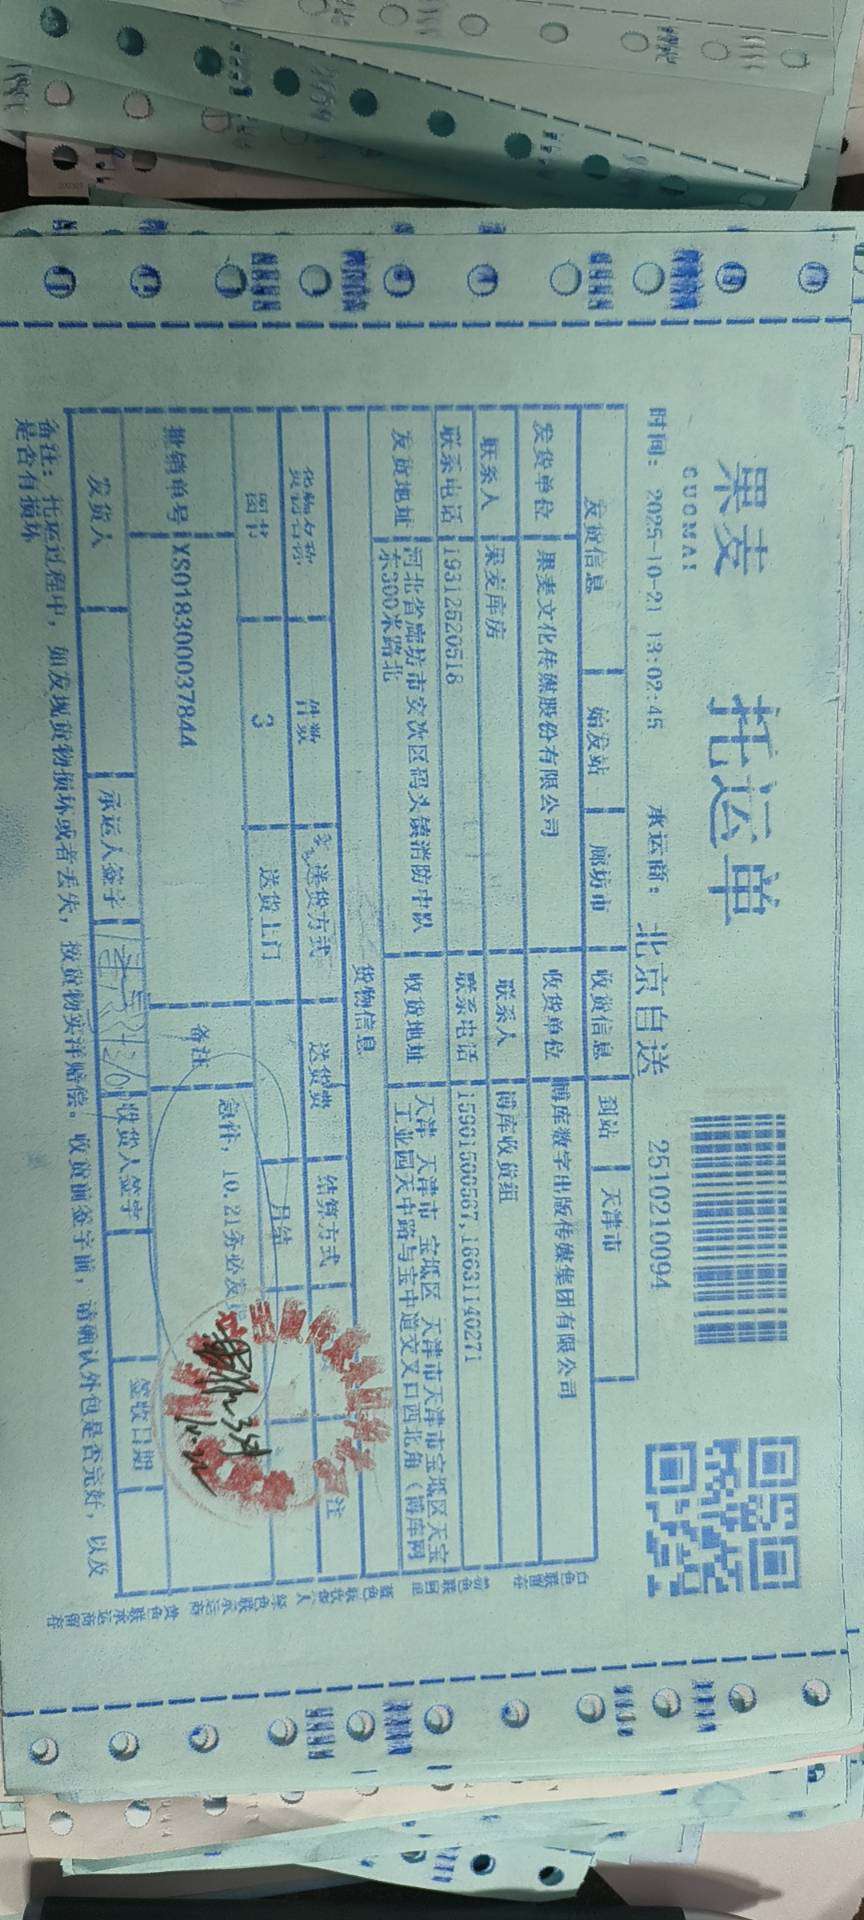 果麦
GUOMAI
托运单
2510210094
时间: 2025-10-21 13:02:45 承运商: 北京自送
发货信息 始发站 廊坊市 收货信息 到站 天津市
发货单位 果麦文化传媒股份有限公司 收货单位 博库数字出版传媒集团有限公司
联系人 果麦库房 联系人 博库收货组
联系电话 19312520518 联系电话 15901500567,18631140271
发货地址 河北省廊坊市安次区码头镇消防中队东300米路北 收货地址 天津 天津市 宝坻区 天津市天津市宝坻区天宝工业园天中路与宝中道交叉口西北角(博库网
货物信息
货物名称 件数 送货方式 送货费 结算方式 注
图书 3 送货上门 月结
撤销单号 XS018300037844 备注 急件, 10.21务必发
发货人 承运人签字 收货人签字 签收日期
备注: 托运过程中, 如发现货物损坏或者丢失, 按货物实洋赔偿。收货前签字前, 请确认外包是否完好, 以及
是否有损坏
白色联留存
蓝色联收货人
绿色联承运商
黄色联承运商留存